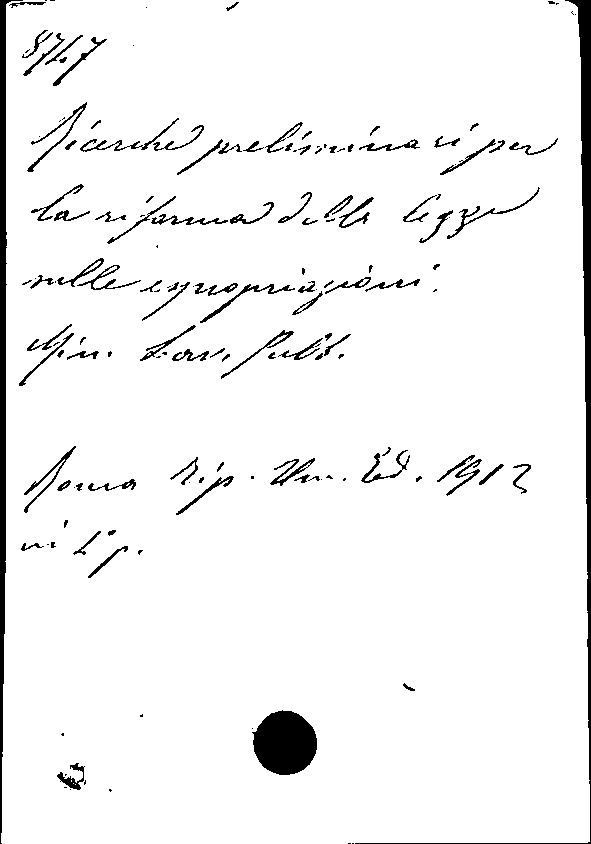 8747
Ricerche preliminari per
la riforma delle legge
sulle espropriazioni.
Min. Lav. Pubb.
Roma Tip. Un. Ed. 1912
in 4° p.